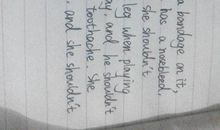 a bandage on it,
has a nosebleed.
she shouldn't
leg when playing
ay, and he shouldn't
toothache. She
, and she shouldn't